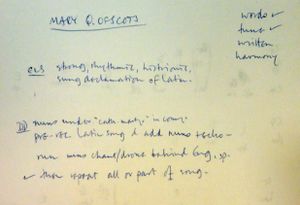 MARY Q. OF SCOTS
words ✓
tune ✓
written
harmony
strong, rhythmic, histrionic,
sung declamation of Latin.
nuns under "cath. martyr" in comic
PRE-REC Latin song & add nuns + echo -
run nuns chant/drone behind Eng. sp.
✓ then repeat all or part of song.